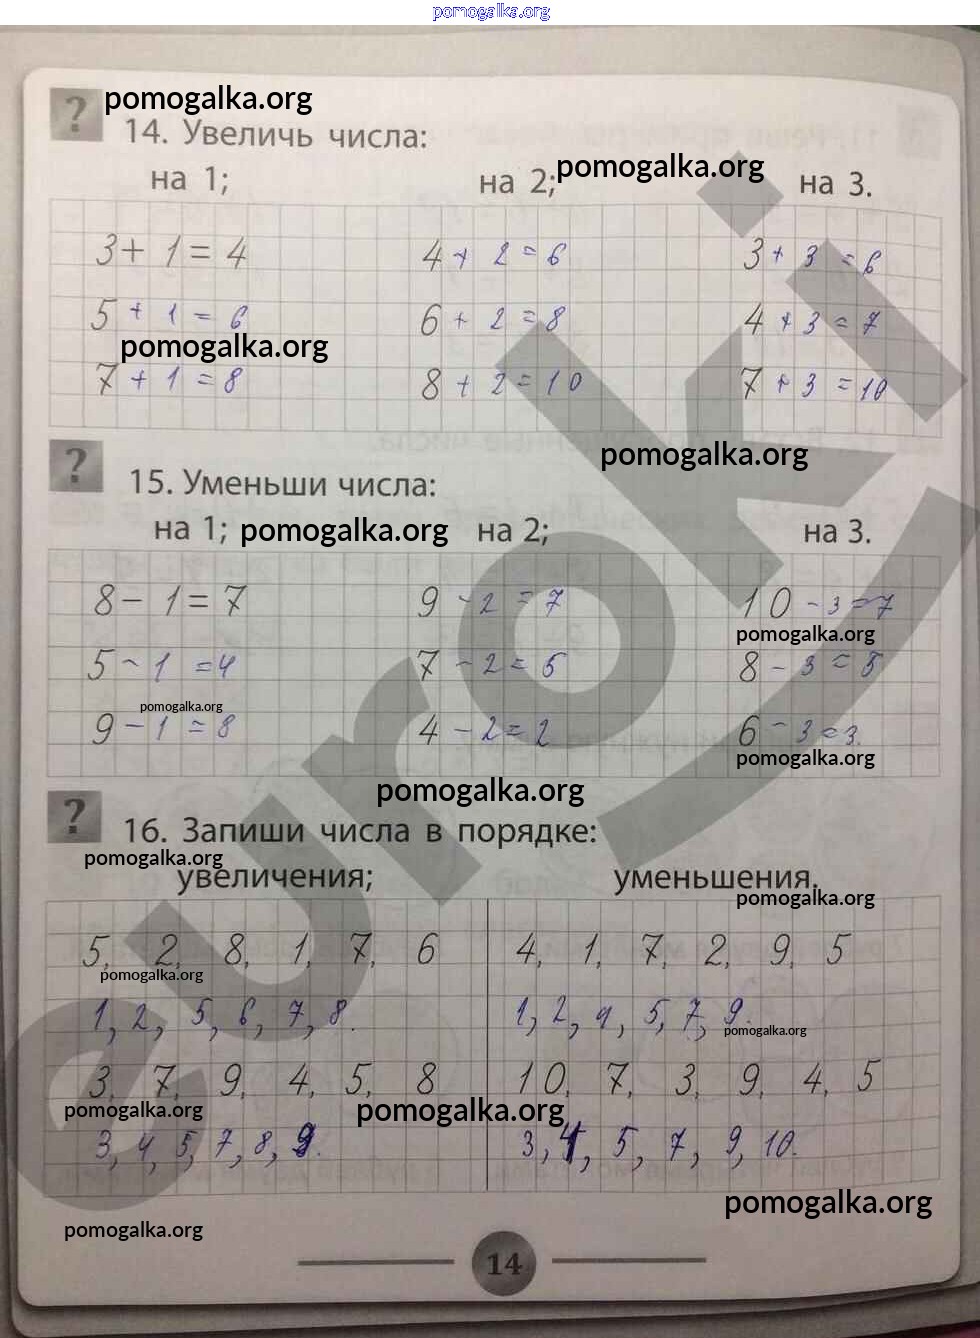 pomogalka.org
? pomogalka.org
14. Увеличь числа:
на 1; на 2; pomogalka.org на 3.
3 + 1 = 4 4 + 2 = 6 3 + 3 = 6
5 + 1 = 6 6 + 2 = 8 4 + 3 = 7
pomogalka.org
7 + 1 = 8 8 + 2 = 10 7 + 3 = 10
? pomogalka.org
15. Уменьши числа:
на 1; pomogalka.org на 2; на 3.
8 - 1 = 7 9 - 2 = 7 10 - 3 = 7
pomogalka.org
5 - 1 = 4 7 - 2 = 5 8 - 3 = 5
pomogalka.org
9 - 1 = 8 4 - 2 = 2 6 - 3 = 3.
pomogalka.org
pomogalka.org
? 16. Запиши числа в порядке:
pomogalka.org
увеличения; уменьшения.
pomogalka.org
5, 2, 8, 1, 7, 6 4, 1, 7, 2, 9, 5
pomogalka.org
1, 2, 5, 6, 7, 8. 1, 2, 4, 5, 7, 9.
pomogalka.org
3, 7, 9, 4, 5, 8 10, 7, 3, 9, 4, 5
pomogalka.org pomogalka.org
3, 4, 5, 7, 8, 9. 3, 4, 5, 7, 9, 10.
pomogalka.org
pomogalka.org
14
euroki